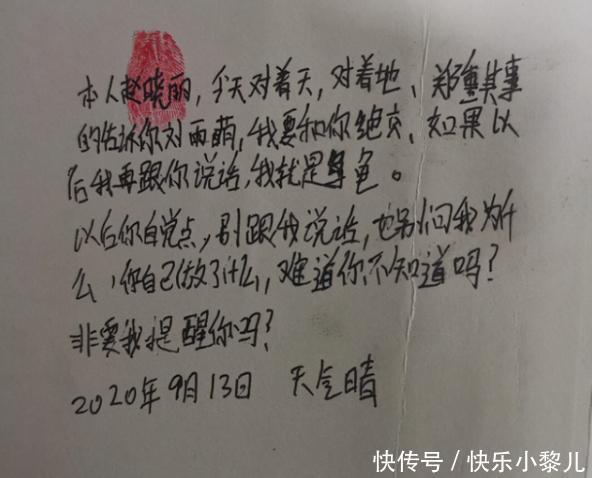 本人赵晓丽，今天对着天，对着地、郑重其事
的告诉你刘雨萌，我要和你绝交，如果以
后我再跟你说话，我就是乌龟。
以后你自觉点，别跟我说话，也别问我为什
么，你自己做了什么，难道你不知道吗？
非要我提醒你吗？
2020年9月13日 天气晴
快传号/快乐小黎儿